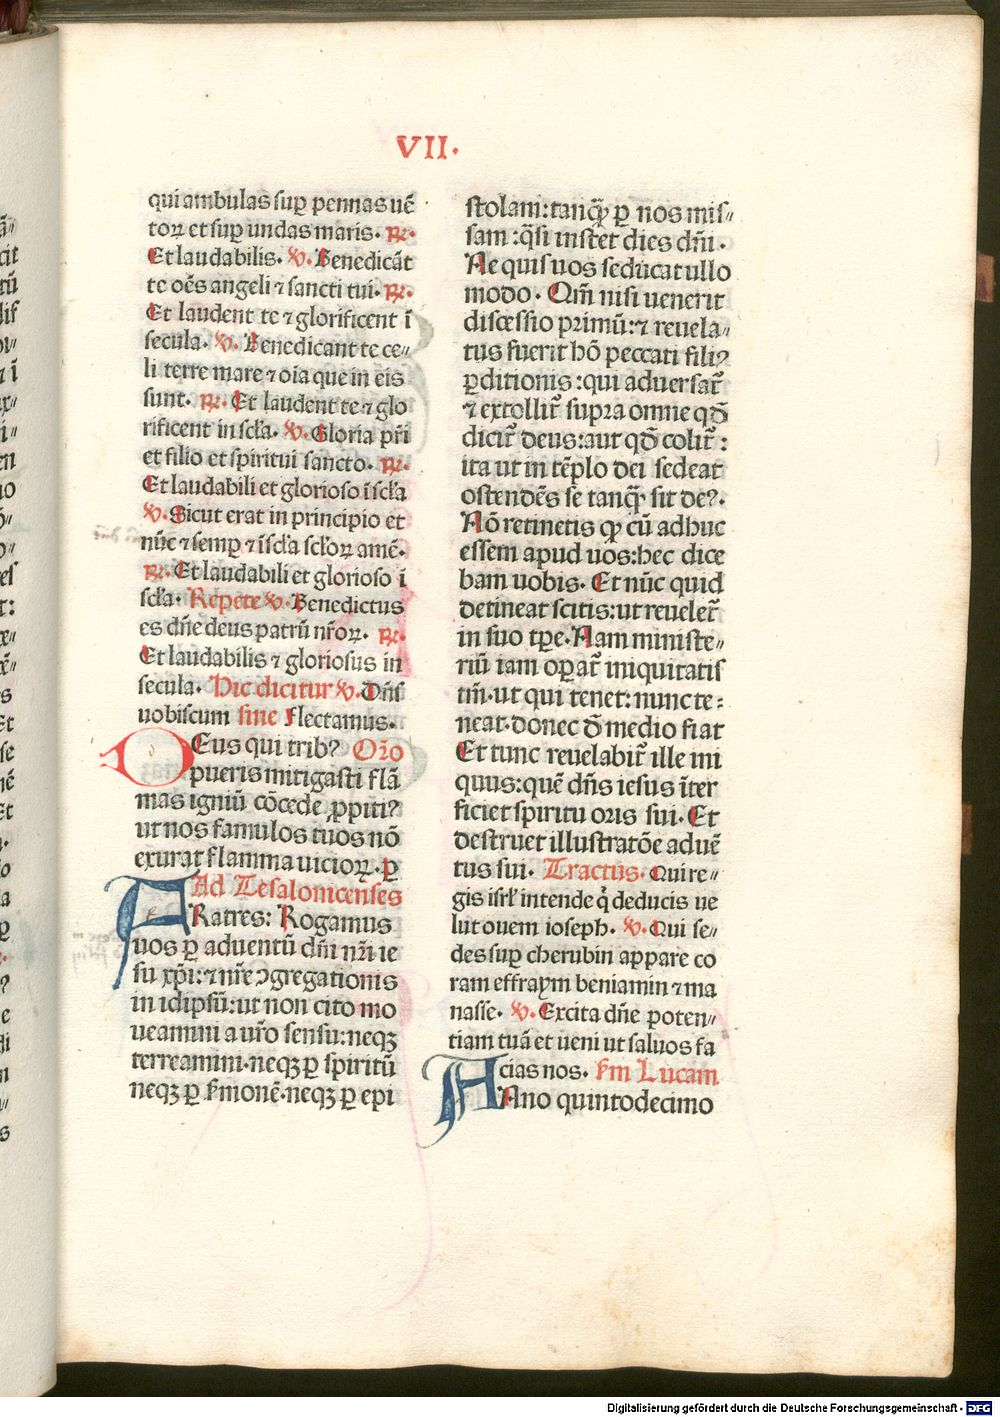 VII.
qui ambulas sup̱ pennas uē
toꝝ et sup̱ undas maris. ℟.
Et laudabilis. ℣. Benedicāt
te oēs angeli ⁊ sancti tui. ℟.
Et laudent te ⁊ glorificent ī
secula. ℣. Benedicant te ce〃
li terre mare ⁊ oīa que in eis
sunt. ℟. Et laudent te ⁊ glo
rificent in scła. ℣. Gloria pr̄i
et filio et spiritui sancto. ℟.
Et laudabili et glorioso ī scła
℣. Sicut erat in principio et
nūc ⁊ semꝑ ⁊ ī scła scłoꝝ amē.
℟. Et laudabili et glorioso ī
scła. Repete ℣. Benedictus
es dn̄e deus patrū nr̄oꝝ. ℟.
Et laudabilis ⁊ gloriosus in
secula. Hic dicitur ℣. Dn̄s
uobiscum sine Flectamus.
DEus qui trib? Or̄o
pueris mitigasti flā
mas igniū cōcede ꝓpiti?
ut nos famulos tuos nō
exurat flamma uicioꝝ. ꝑ
Ad Tesalonicenses
FRatres: Rogamus
uos ꝑ aduentū dn̄i nr̄i ie
su xp̄i: ⁊ nr̄e ↄgregationis
in idipsū: ut non cito mo
ueamini a ur̄o sensu: neqꝫ
terreamini. neqꝫ ꝑ spiritū
neqꝫ ꝑ ẜmonē. neqꝫ ꝑ epi
stolam: tanqᷓ ꝑ nos mis〃
sam: q̄si instet dies dn̄i.
Ne quis uos seducat ullo
modo. Qm̄ nisi uenerit
discessio primū: ⁊ reuela〃
tus fuerit hō peccati fili?
ꝑditionis: qui aduersat᷑
⁊ extollit᷑ supra omne qd̄
dicit᷑ deus: aut qd̄ colit᷑:
ita ut in tēplo dei sedeat
ostendēs se tanqᷓ sit de?.
Nō retinetis ꝙ cū adhuc
essem apud uos: hec dice
bam uobis. Et nūc quid
detineat scitis: ut reuelet᷑
in suo tp̄e. Nam ministe〃
riū iam oꝑat᷑ iniquitatis
tm̄. ut qui tenet: nunc te:
neat. donec d̄ medio fiat
Et tunc reuelabit᷑ ille ini
quus: quē dn̄s iesus īter
ficiet spiritu oris sui. Et
destruet illustratōe aduē
tus sui. Tractus. Qui re〃
gis isrł intende q̇ deducis ue
lut ouem ioseph. ℣. Qui se〃
des sup̱ cherubin appare co
ram effraym beniamin ⁊ ma
nasse. ℣. Excita dn̄e poten〃
tiam tuā et ueni ut saluos fa
cias nos. ẜm Lucam
ANno quintodecimo
Digitalisierung gefördert durch die Deutsche Forschungsgemeinschaft - DFG